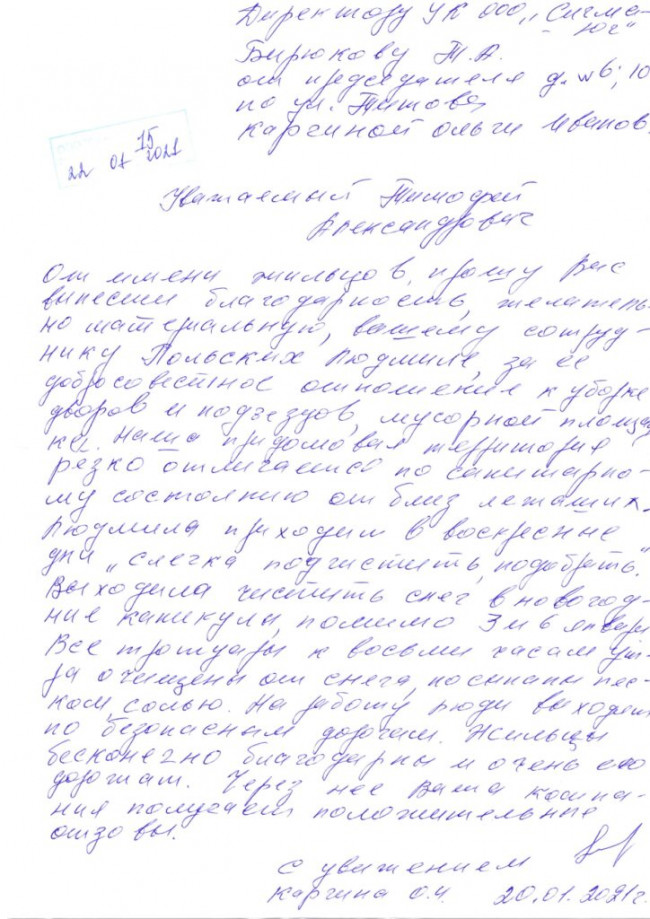 Директору УК ООО „Сигма-
- Юг"
Бирюкову Т.А.
от председателя д. №6; 10
по ул. Титова
Каргиной Ольги Иванов.
15
22 01 2021
Уважаемый Тимофей
Александрович
От имени жильцов, прошу Вас
вынести благодарность, желатель-
но материальную, вашему сотруд-
нику Польских Людмиле, за её
добросовестное отношения к уборке
дворов и подъездов, мусорной площад
ки. Наша придомовая территория
резко отличается по санитарно-
му состоянию от близ лежащих.
Людмила приходит в воскресные
дни „слегка подчистить, подобрать".
Выходила чистить снег в новогод-
ние каникулы, помимо 3 и 6 января.
Все тротуары к восьми часам ут-
ра очищены от снега, посыпаны пес-
ком, солью. На работу люди выходят
по безопасным дорогам. Жильцы
бесконечно благодарны и очень ею
дорожат. Через неё Ваша компа-
ния получает положительные
отзывы.
С уважением
Каргина О.И. 20.01.2021г.